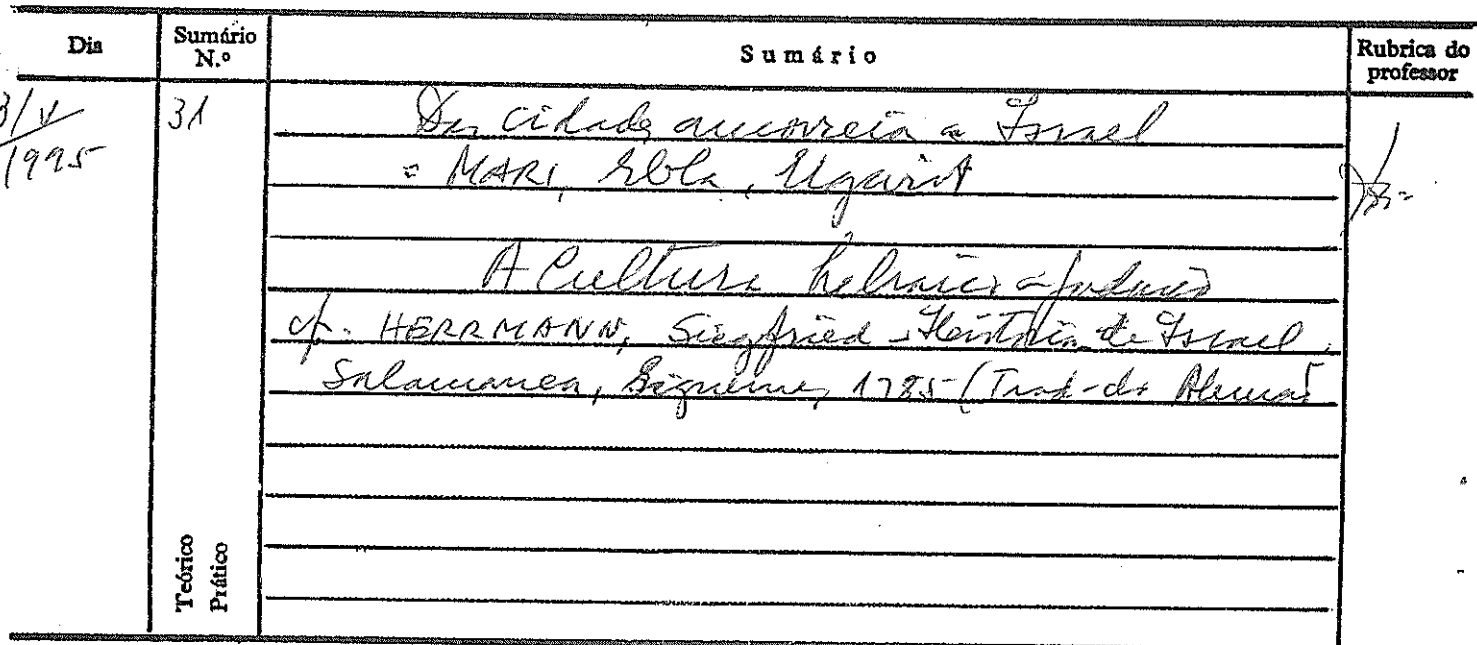 Dia
Sumário N.º
Sumário
Rubrica do professor
3/V/1995
31
Das cidades amorreia a Israel
= MARI, Ebla, Ugarit
A Cultura hebraico-judaica
cf. HERRMANN, Siegfried - História de Israel,
Salamanca, Sígueme, 1985 (Trad. do Alemão
Teórico
Prático